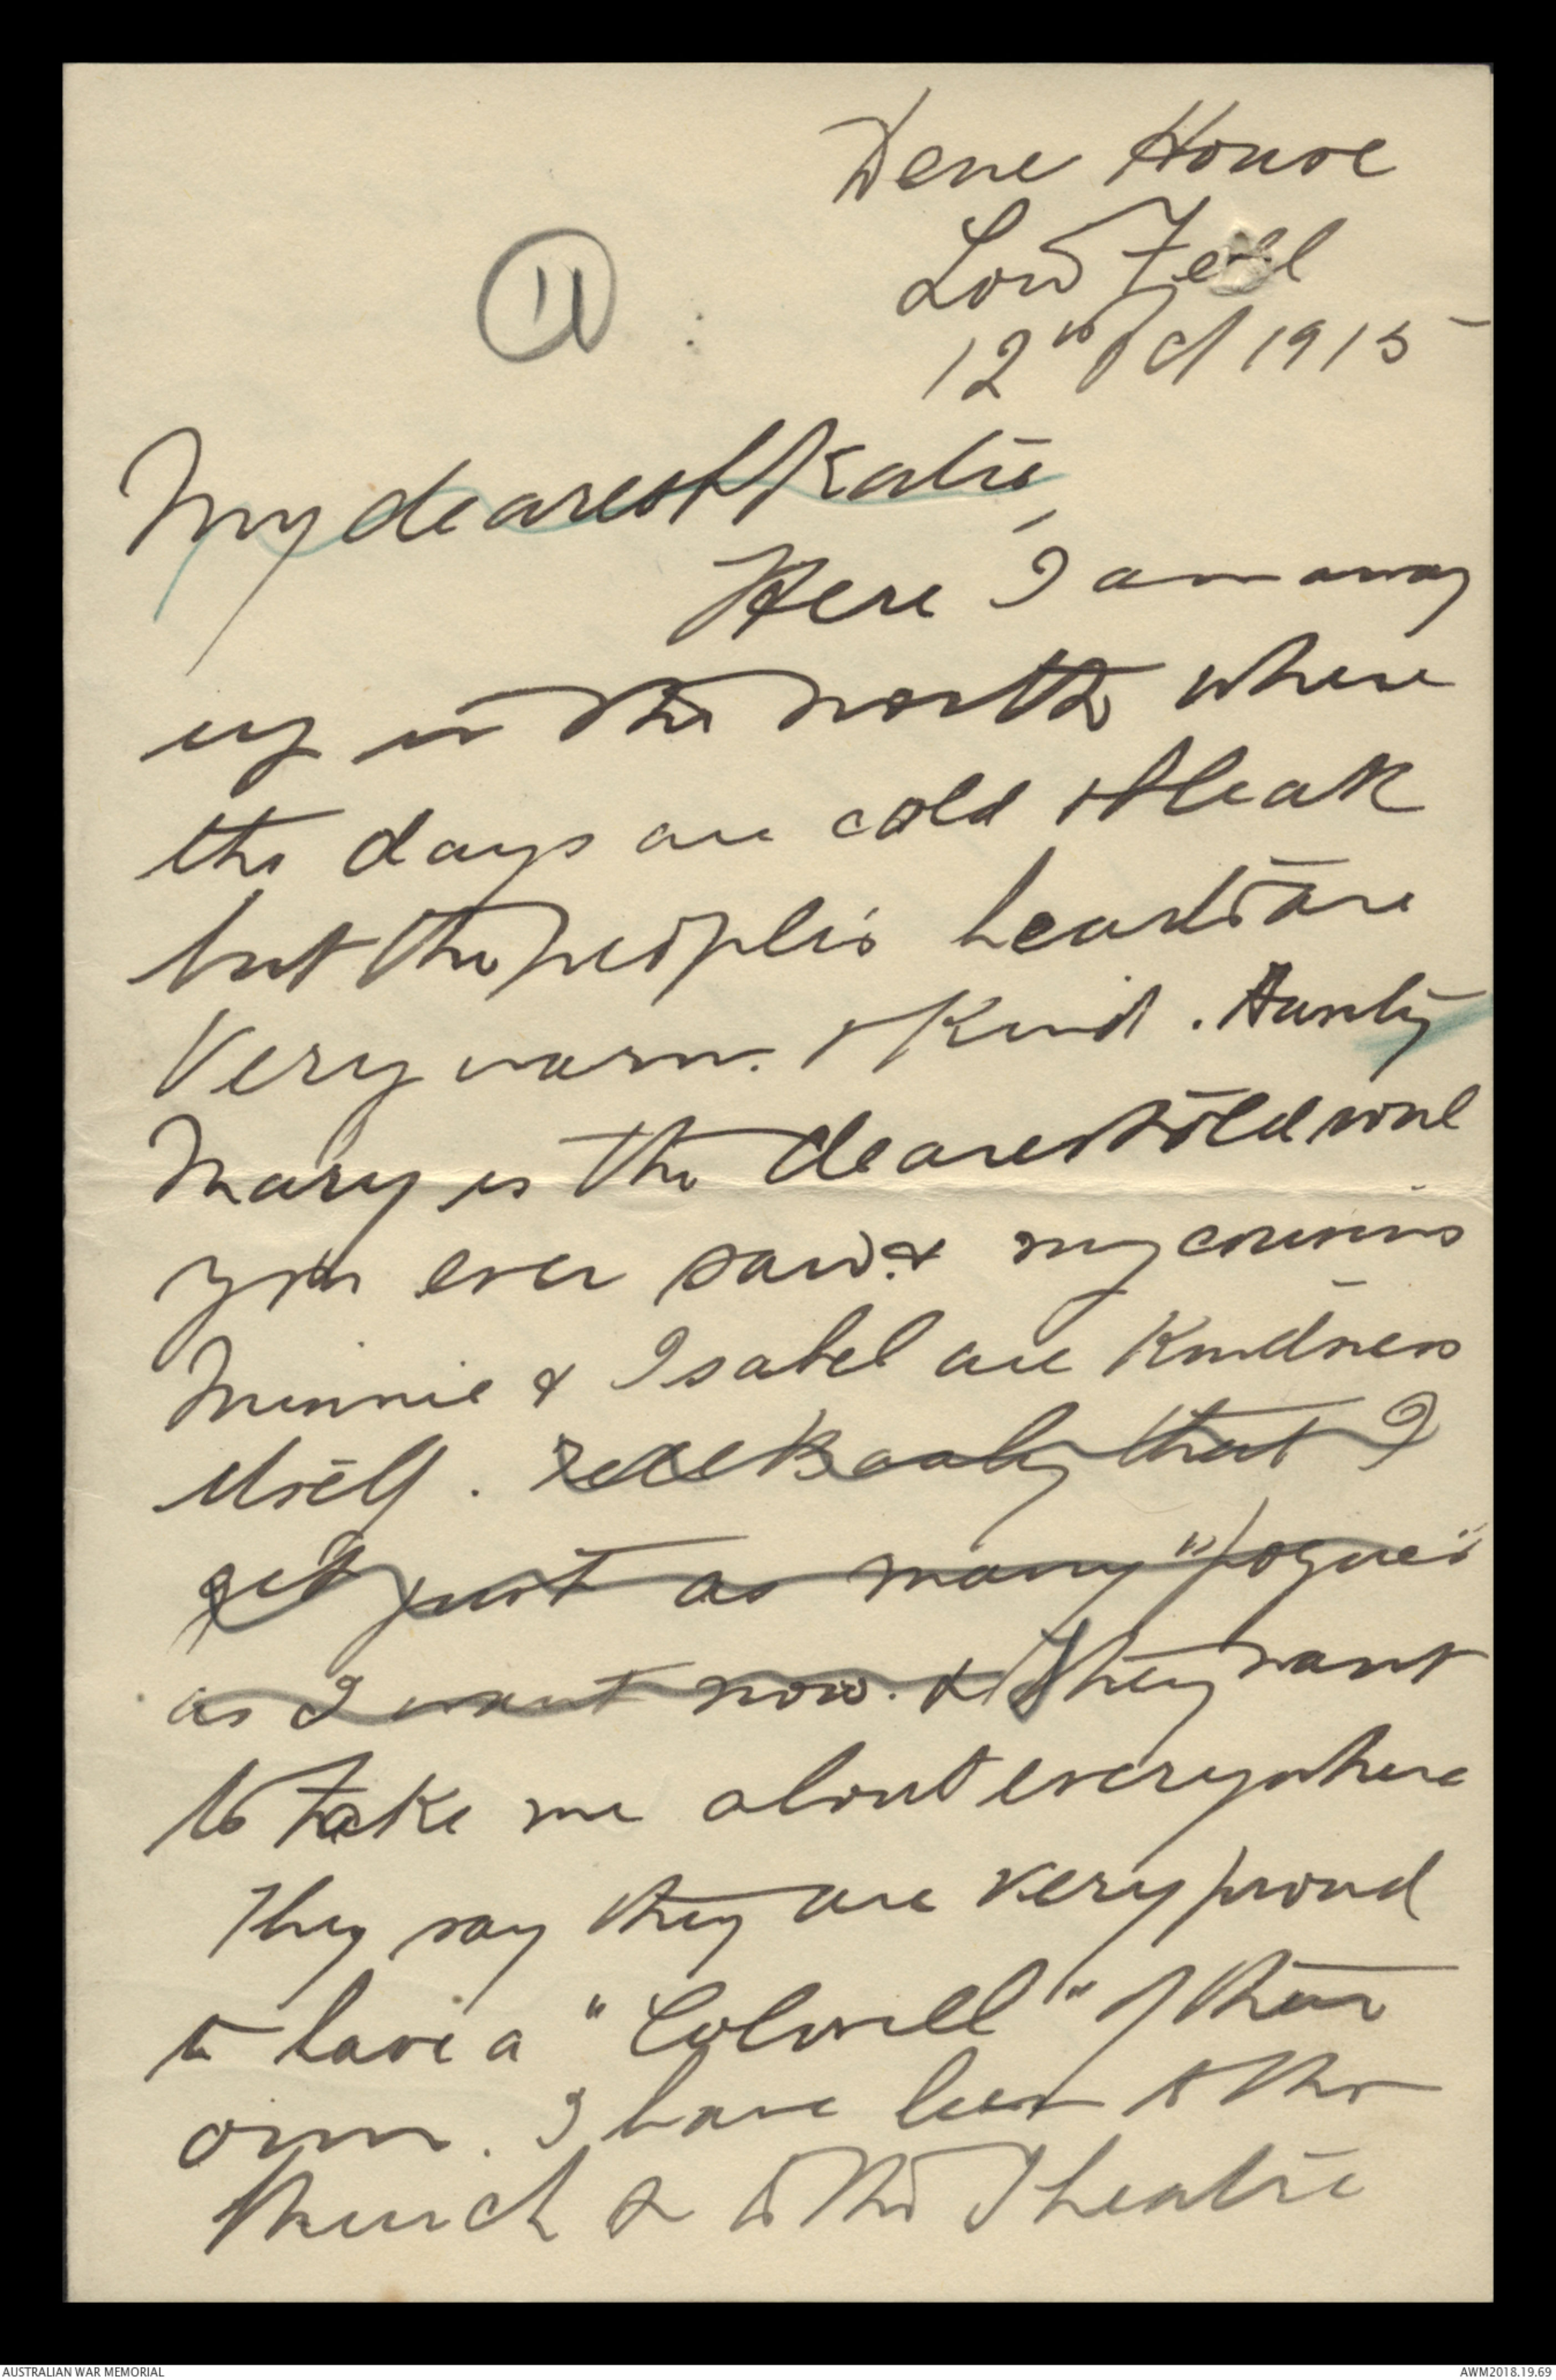 Dene House
Low Fell
12th Oct 1915
11
My dearest Katie,
Here I am away
up in the north where
the days are cold & bleak
but the people's hearts are
very warm. & kind. Aunty
Mary is the dearest old soul
you ever saw. & my cousins
Minnie & Isabel are kindness
itself. Tell Baaly that I
get just as many "pogues"
as I want now. & They want
to take me about everywhere
They say they are very proud
to have a "Colonell" of their
own. I have been to the
Church & to the Theatre
AUSTRALIAN WAR MEMORIAL
AWM2018.19.69